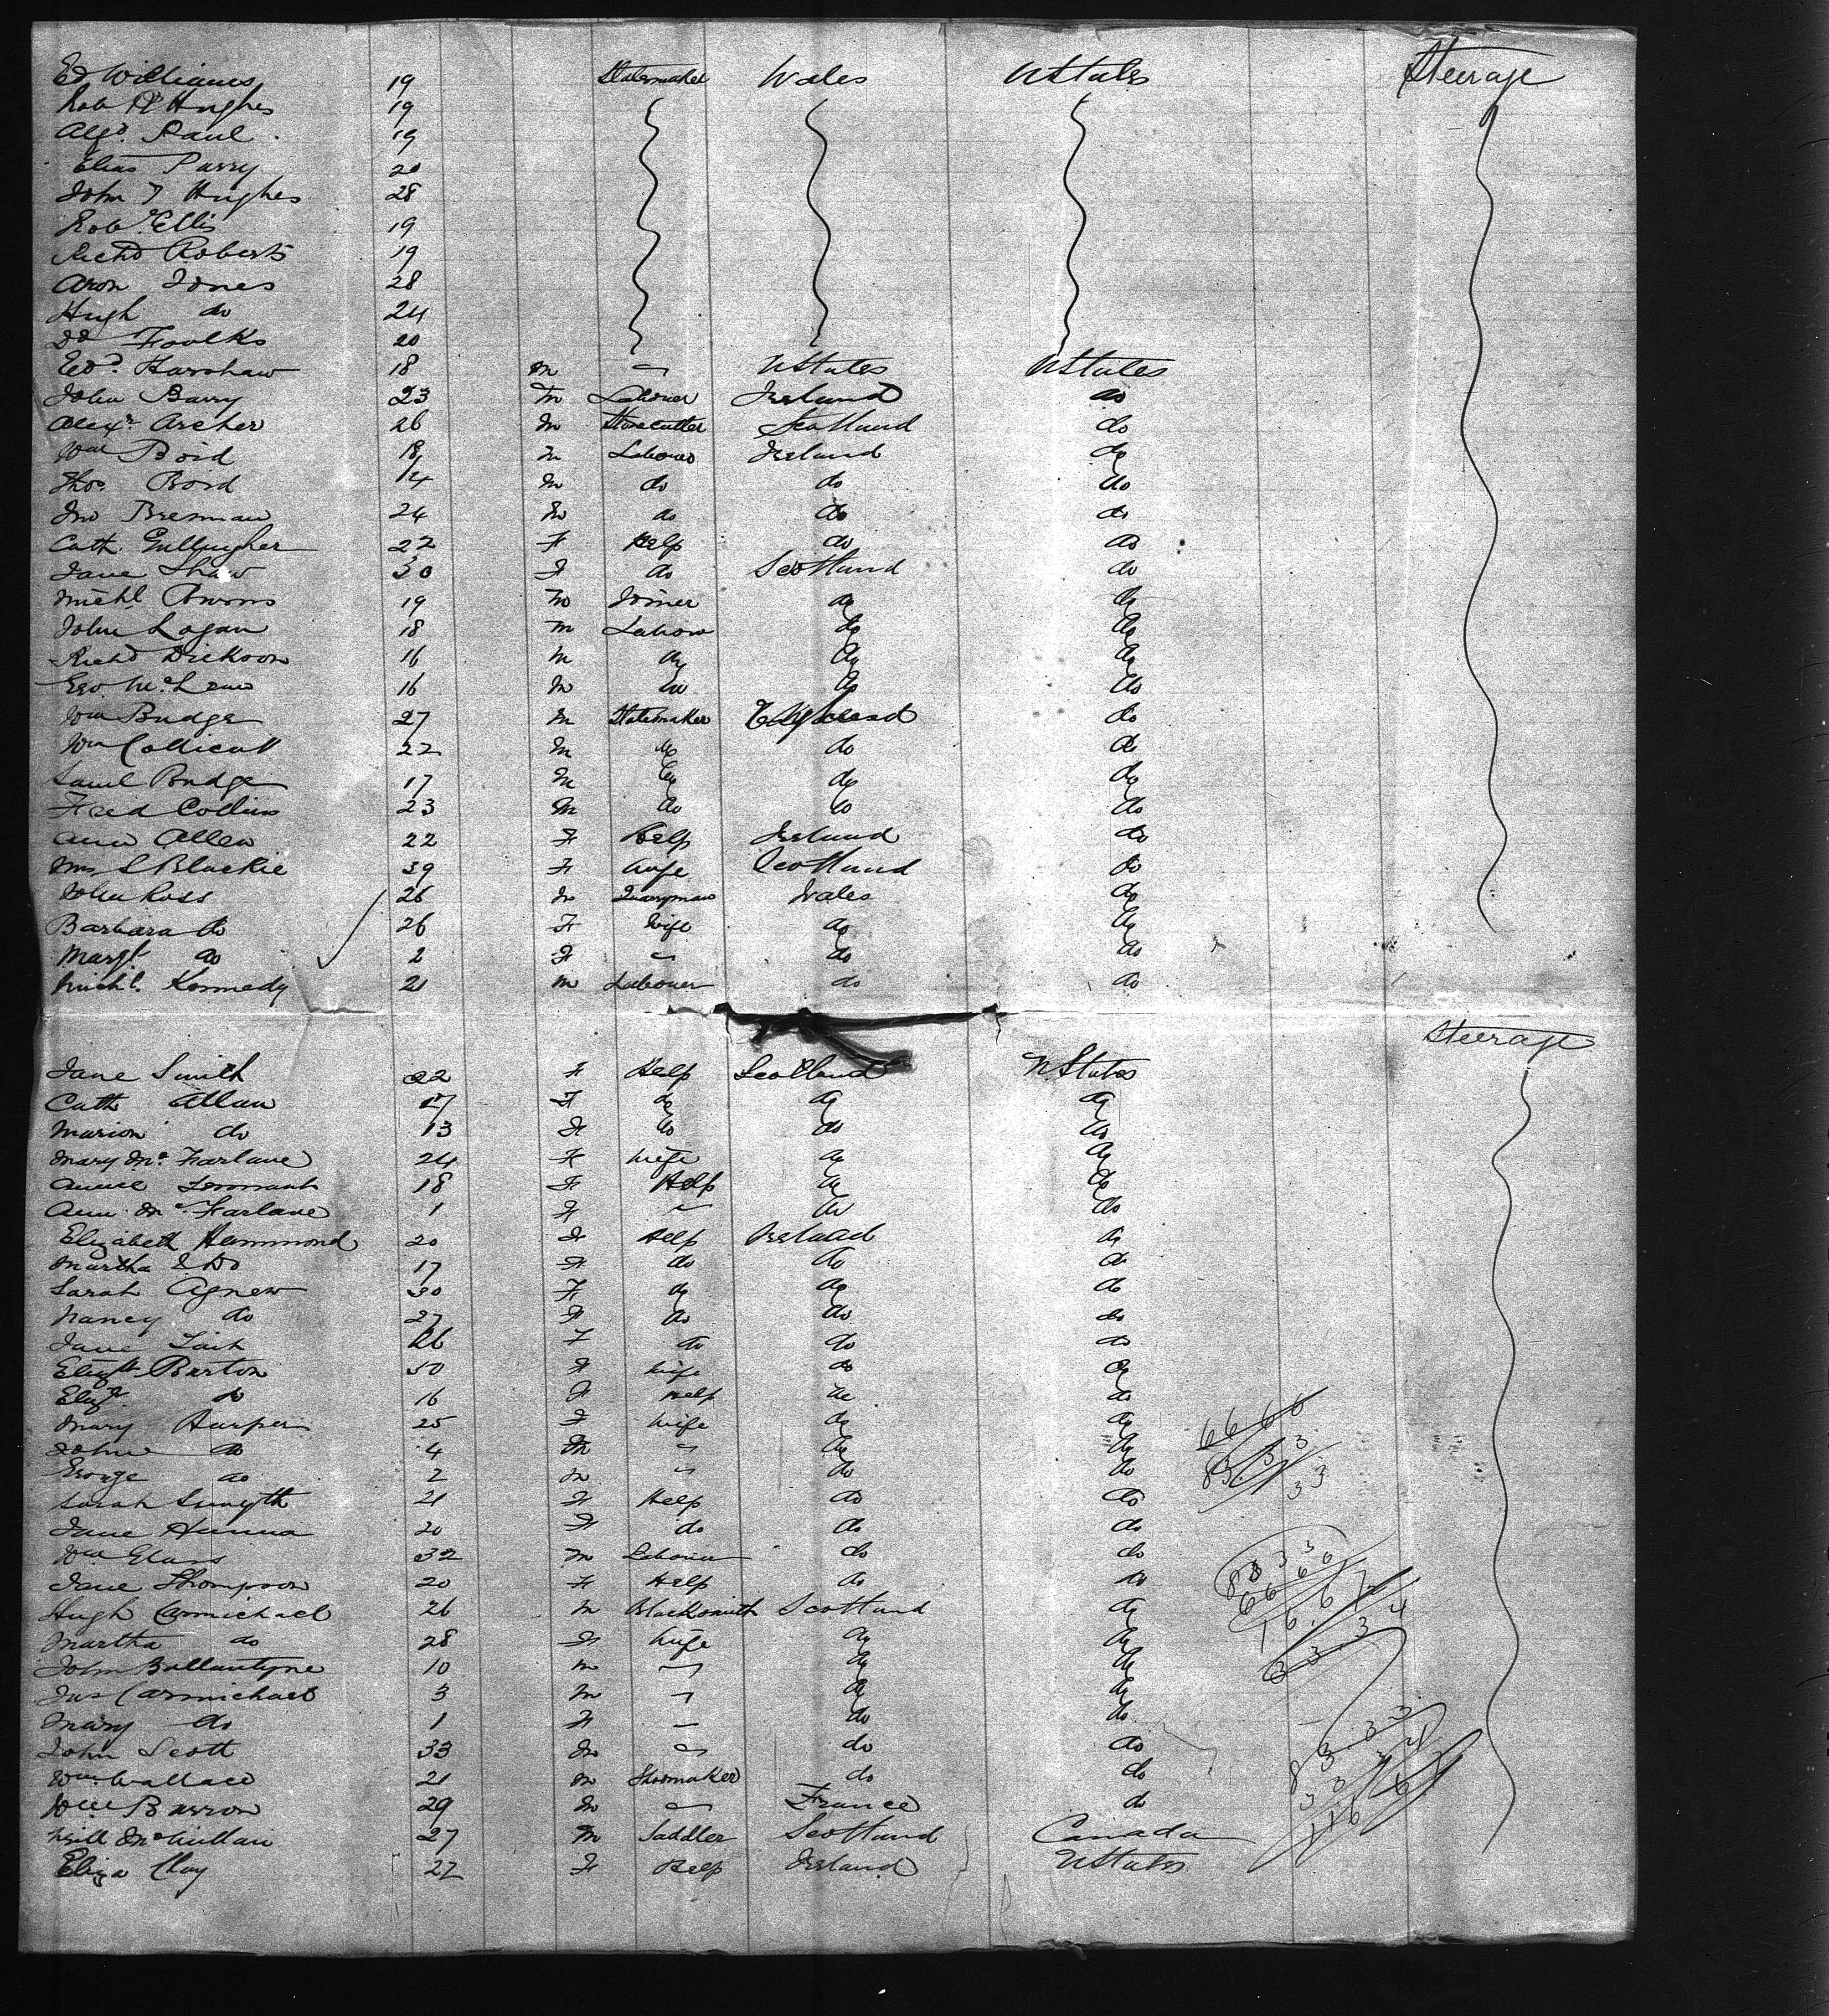 Ed Williams 19 Slatemaker Wales UStates Steerage
Rob H Hughes 19
Alfd. Paul 19
Elias Parry 20
John T Hughes 28
Robt Ellis 19
Richd Roberts 19
Aron Jones 28
Hugh do 24
Dd Foulks 20
Edd. Harshaw 18 m " UStates UStates
John Barry 23 m Labourer Ireland do
Alexr Archer 26 m Stonecutter Scotland do
Wm Boid 18 m Labourer Ireland do
Thos. Boid 14 m do do do
Jno Brennan 24 m do do do
Cath. Gullugher 22 F Help do do
Jane Shaw 30 F do Scotland do
Michl. 19 m Joiner do do
John Logan 18 m Labour do do
Richd Dickson 16 m do do do
Geo. McLean 16 m do do do
Wm Budge 27 m Slatemaker England do
Wm Collicott 22 m do do do
Saml Budge 17 m do do do
Fred Collins 23 m do do do
Ann Allen 22 F Help Ireland do
Mrs S Blackie 39 F Wife Scotland do
John Ross 26 m Quarryman Wales do
Barbara do 26 F Wife do do
Margt do 2 F " do do
Michl. Kennedy 21 m Labourer do do
Steerage
Jane Smith 22 F Help Scotland UStates
Cath Allan 17 F do do do
Marion do 13 F do do do
Mary McFarlane 24 F Wife do do
Annie 18 F Help do do
Ann McFarlane 1 F " do do
Elizabeth Hammond 20 F Help Ireland do
Martha do 17 F do do do
Sarah Agnew 30 F do do do
Nancy do 27 F do do do
Jane 26 F do do do
Elizth Burton 50 F Wife do do
Eliz. do 16 F Help do do
Mary Harper 25 F Wife do do
John do 4 m " do do
George do 2 m " do do
Sarah Smyth 21 F Help do do
Jane Hanna 20 F do do do
Wm Glass 32 m Labourer do do
Jane Thompson 20 F Help do do
Hugh Carmichael 26 m Blacksmith Scotland do
Martha do 28 F Wife do do
John Ballantyne 10 m " do do
Jas Carmichael 3 m " do do
Mary do 1 F " do do
John Scott 33 m " do do
Wm. Wallace 21 m Shoemaker do do
Wm Barron 29 m " France do
Neill McMillan 27 m Saddler Scotland Canada
Eliza Clay 22 F Help Ireland UStates